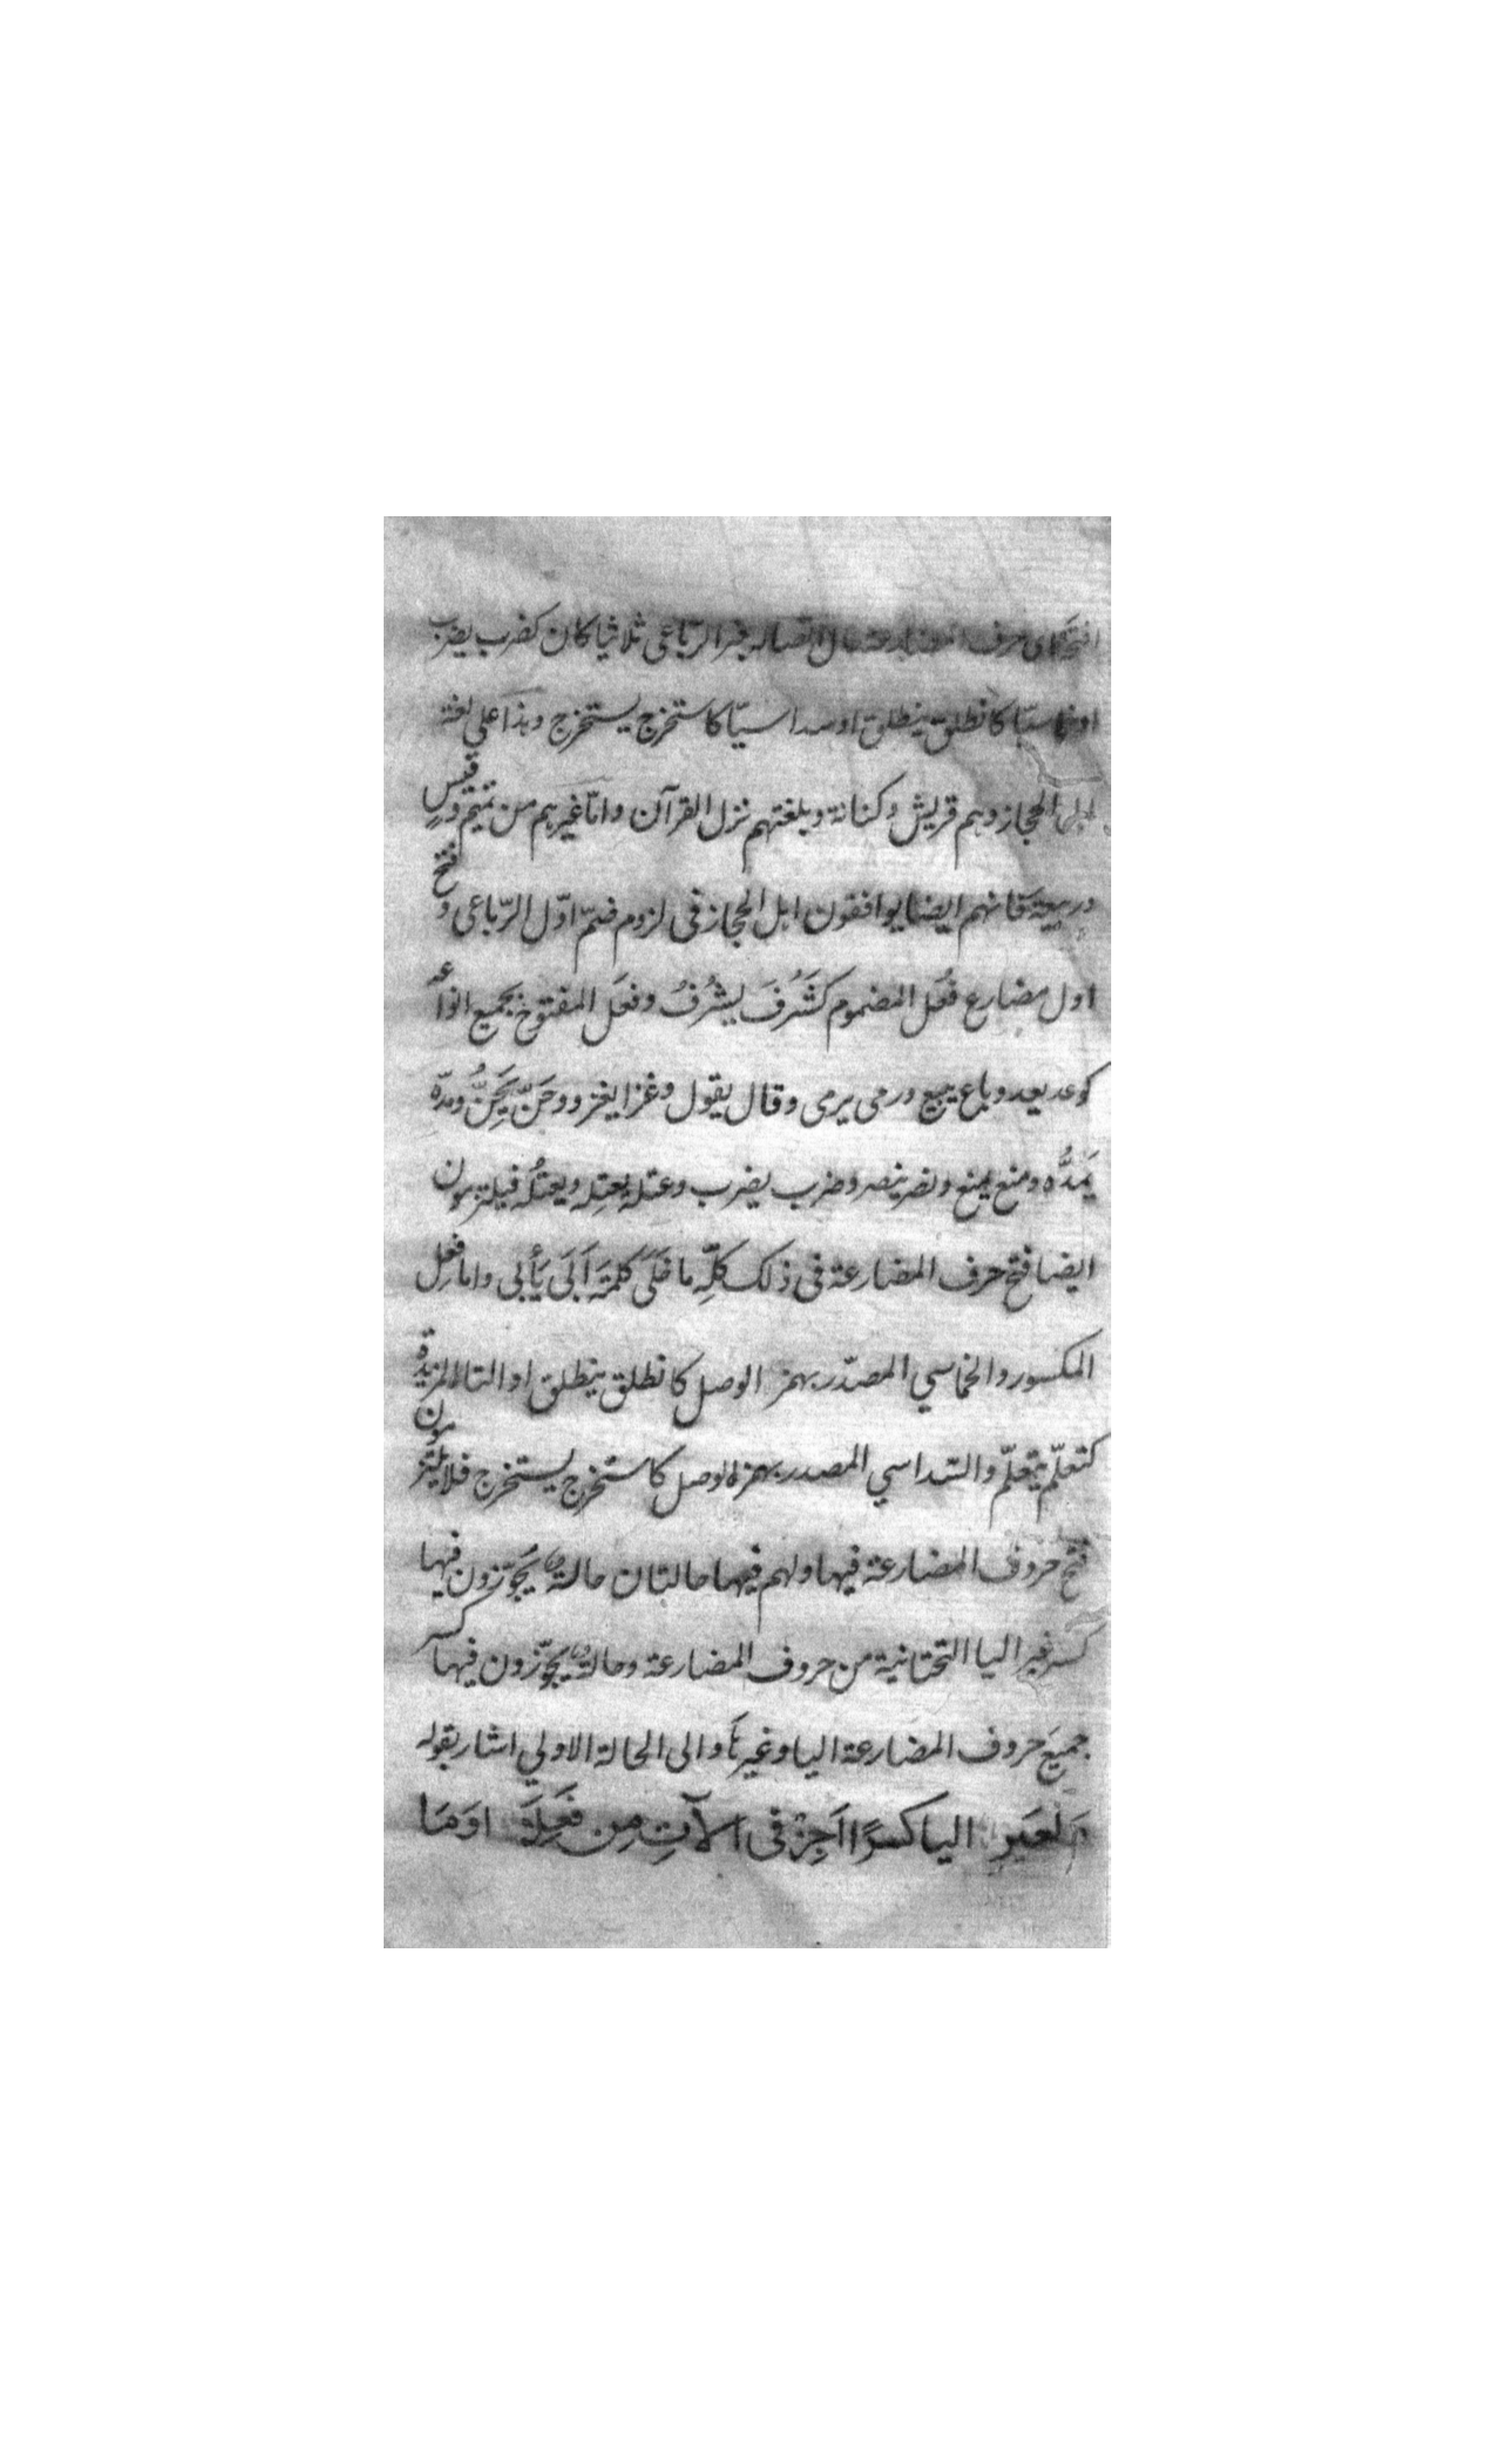 افتحه اى حرف المضارعة حال اتصاله بغير الرّباعى ثلاثيا كان كضرب يضرب
او خماسيّا كانطلق ينطلق او سداسيّا كاستخرج يستخرج وهذا على لغة
اهل الحجاز وهم قريش وكنانة وبلغتهم نزل القرآن وامّا غيرهم من تميم وقيسٍ
وربيعة فانهم ايضا يوافقون اهل الحجاز فى لزوم ضمّ اوّل الرّباعى وفتح
اول مضارع فعُل المضموم كشَرُفَ يشرُفُ وفعَل المفتوح بجميع انواعه
كوعد يعد وباع يبيع ورمى يرمى وقال يقول وغزا يغزو وحَنّ يَحِنُّ ومدّه
يَمدُّه ومنع يمنع ونصر ينصر وضرب يضرب وعتله يعتِله ويعتُله فيلتزمون
ايضا فتح حرف المضارعة فى ذلك كلّه ما خلَى كلمَة اَبَى يَأبى واما فعِل
المكسور والخماسي المصدّر بهمز الوصل كانطلق ينطلق او التاء المزيدة
كتعلّم يتعلّم والسّداسي المصدر بهمزة الوصل كاستخرج يستخرج فلا يلتزمون
فتح حروف المضارعة فيها ولهم فيهما حالتان حالة يَجوّزون فيها
كسر غير اليا التحتانية من حروف المضارعة وحالة يجوّزون فيها كسر
جميعَ حروف المضارعة اليا وغيرهَا والى الحالة الاولي اشار بقوله
ولغَيرِ اليا كسرًا اَجِزْ فى الآتِ مِن فَعِلَ اوَمَا